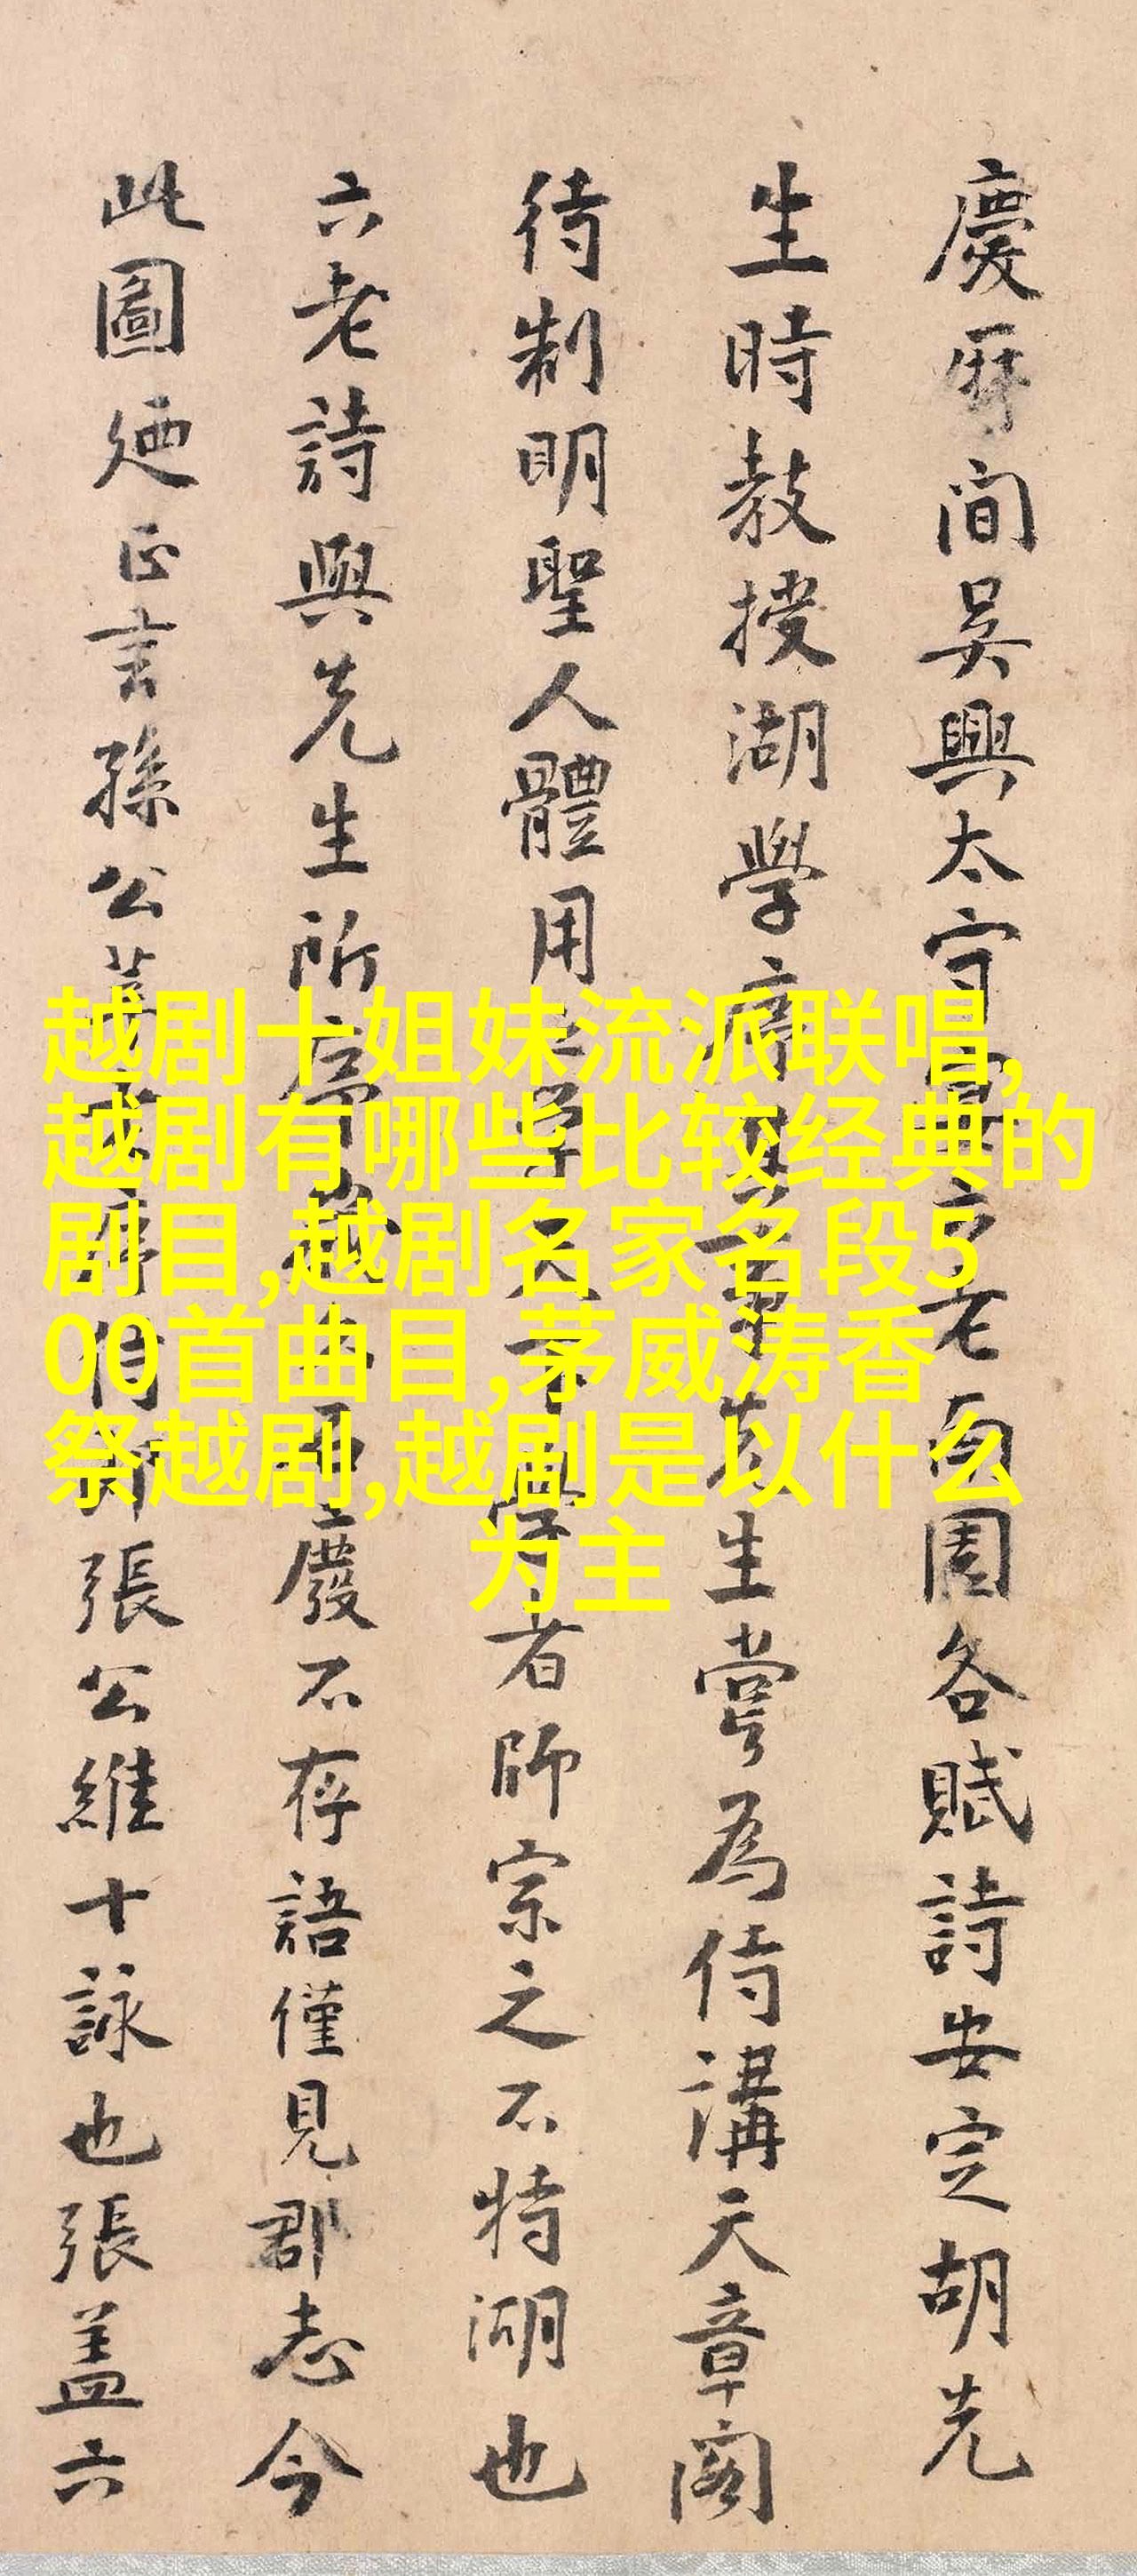 慶曆間吳興太守宴六老南園各賦詩安定胡先
生時教授湖學序其事先生嘗為侍講天章閣
待制明聖人體用之學天下學者師宗之不特湖也
六老詩與先生所序越百廢不存語僅見郡志今
此圖廼正言孫公莘老序侍郎張公維十詠也張蓋六
越剧十姐妹流派联唱,
越剧有哪些比较经典的
剧目,越剧名家名段5
00首曲目,茅威涛香
祭越剧,越剧是以什么
为主